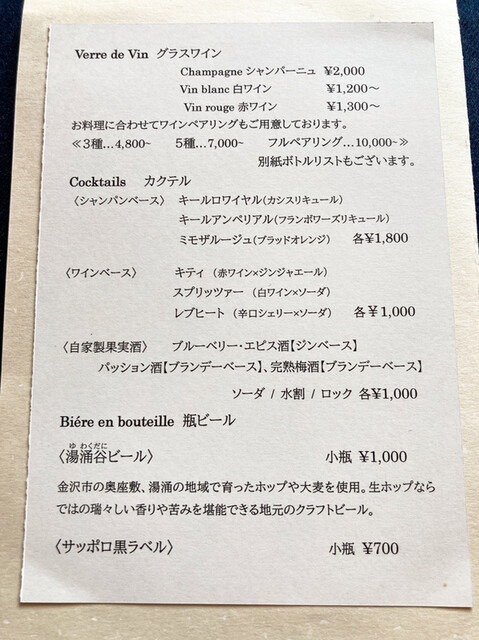 Verre de Vin グラスワイン
Champagne シャンパーニュ ¥2,000
Vin blanc 白ワイン ¥1,200〜
Vin rouge 赤ワイン ¥1,300〜
お料理に合わせてワインペアリングもご用意しております。
≪3種…4,800~ 5種…7,000~ フルペアリング…10,000~≫
別紙ボトルリストもございます。
Cocktails カクテル
〈シャンパンベース〉 キールロワイヤル(カシスリキュール)
キールアンペリアル(フランボワーズリキュール)
ミモザルージュ(ブラッドオレンジ) 各¥1,800
〈ワインベース〉 キティ (赤ワイン×ジンジャエール)
スプリッツァー (白ワイン×ソーダ)
レブヒート (辛口シェリー×ソーダ) 各¥1,000
〈自家製果実酒〉 ブルーベリー・エピス酒【ジンベース】
パッション酒【ブランデーベース】、完熟梅酒【ブランデーベース】
ソーダ / 水割 / ロック 各¥1,000
Biére en bouteille 瓶ビール
ゆ わくだに
〈湯涌谷ビール〉 小瓶 ¥1,000
金沢市の奥座敷、湯涌の地域で育ったホップや大麦を使用。生ホップなら
ではの瑞々しい香りや苦みを堪能できる地元のクラフトビール。
〈サッポロ黒ラベル〉 小瓶 ¥700